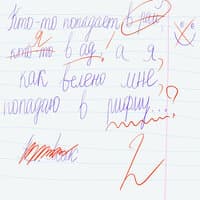 Кто-то попадает в рай,
Я
кто-то в ад, ! а я,
как велено мне,
попадаю в рифму, ?
как
2